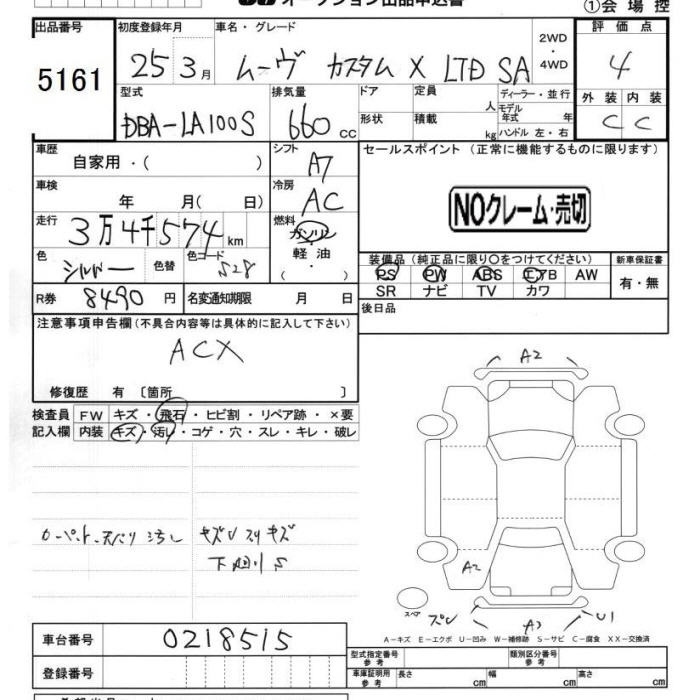 オークション出品申込書
①会場控
出品番号
5161
初度登録年月
25 3月
車名・グレード
ムーヴ カスタム X LTD SA
2WD
・
4WD
評価点
4
外装 内装
C C
型式
DBA-LA100S
排気量
660 cc
ドア
形状
定員 人
積載 kg
ディーラー・並行
モデル年式 年
ハンドル 左・右
車歴
自家用・( )
シフト
A7
セールスポイント (正常に機能するものに限ります)
NOクレーム・売切
車検
年 月( 日)
冷房
AC
走行
3万4千574km
燃料
ガソリン
軽油
・
( )
色
シルバー
色替
色コード
S28
装備品(純正品に限り○をつけてください)
PS PW ABS エアB AW
SR ナビ TV カワ
新車保証書
有・無
R券 8490円
名変通知期限 月 日
後日品
注意事項申告欄(不具合内容等は具体的に記入して下さい)
ACX
修復歴 有 〔箇所 〕
検査員
記入欄
FW キズ・飛石・ヒビ割・リペア跡・×要
内装 キズ・汚レ・コゲ・穴・スレ・キレ・破レ
カーペット、天バリ ヨゴレ
キズU スリキズ
下廻りS
A2
A2
スペア
ズレ
A3
U1
A-キズ E-エクボ U-凹み W-補修跡 S-サビ C-腐食 XX-交換済
車台番号
0218515
登録番号
型式指定番号
参考
類別区分番号
参考
車庫証明用
参考
長さ cm
幅 cm
高さ cm